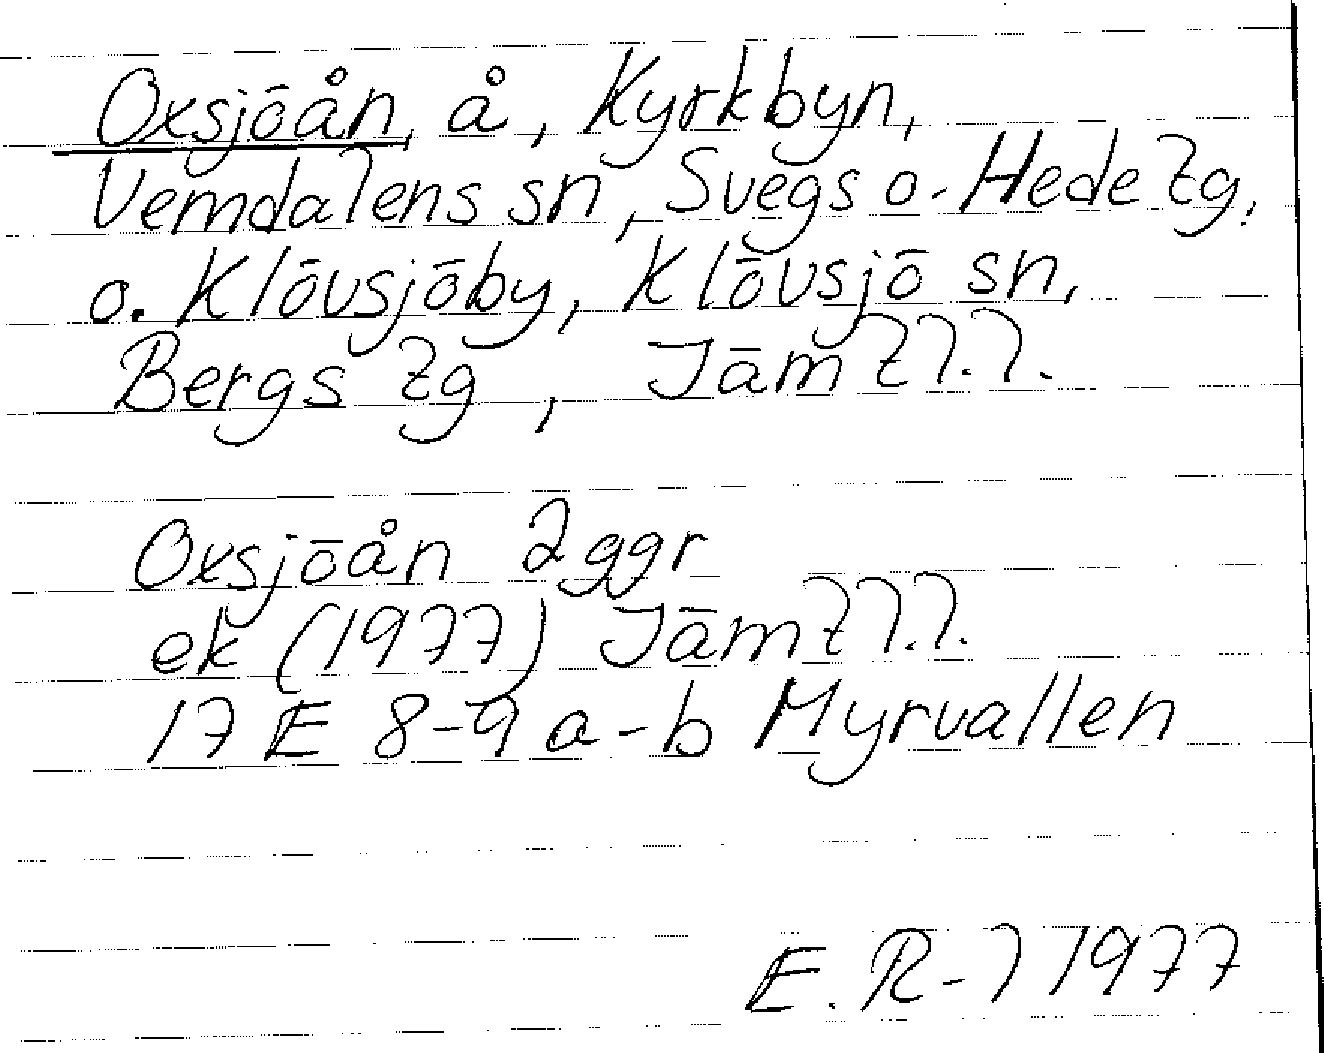 Oxsjöån, å, Kyrkbyn,
Vemdalens sn, Svegs o. Hede tg,
o. Klövsjöby, Klövsjö sn,
Bergs tg, Jämtl.l.
Oxsjöån 2 ggr
ek (1977) Jämtl.l.
17 E 8-9 a-b Myrvallen
E. R-l 1977